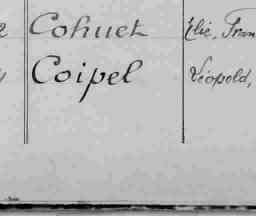 Cohuet Élie, Fran
Coipel Léopold,